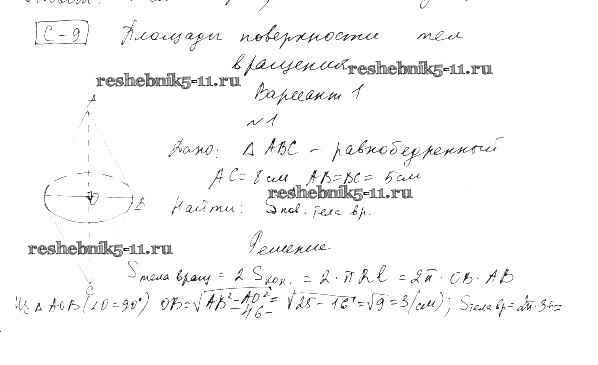 С-9 Площади поверхности тел
вращения
reshebnik5-11.ru
reshebnik5-11.ru
Вариант 1
№1
Дано: Δ ABC – равнобедренный
AC = 8 см AB = BC = 5 см
reshebnik5-11.ru
B Найти: Sпов. тела вр.
reshebnik5-11.ru
Решение
Sтела вращ = 2 Sкон. = 2 · π Rl = 2π · OB · AB
C
Из Δ AOB (∠O=90°) OB = √AB² – AO² = √25 – 16 = √9 = 3 (см); Sтела вр = 2π · 3